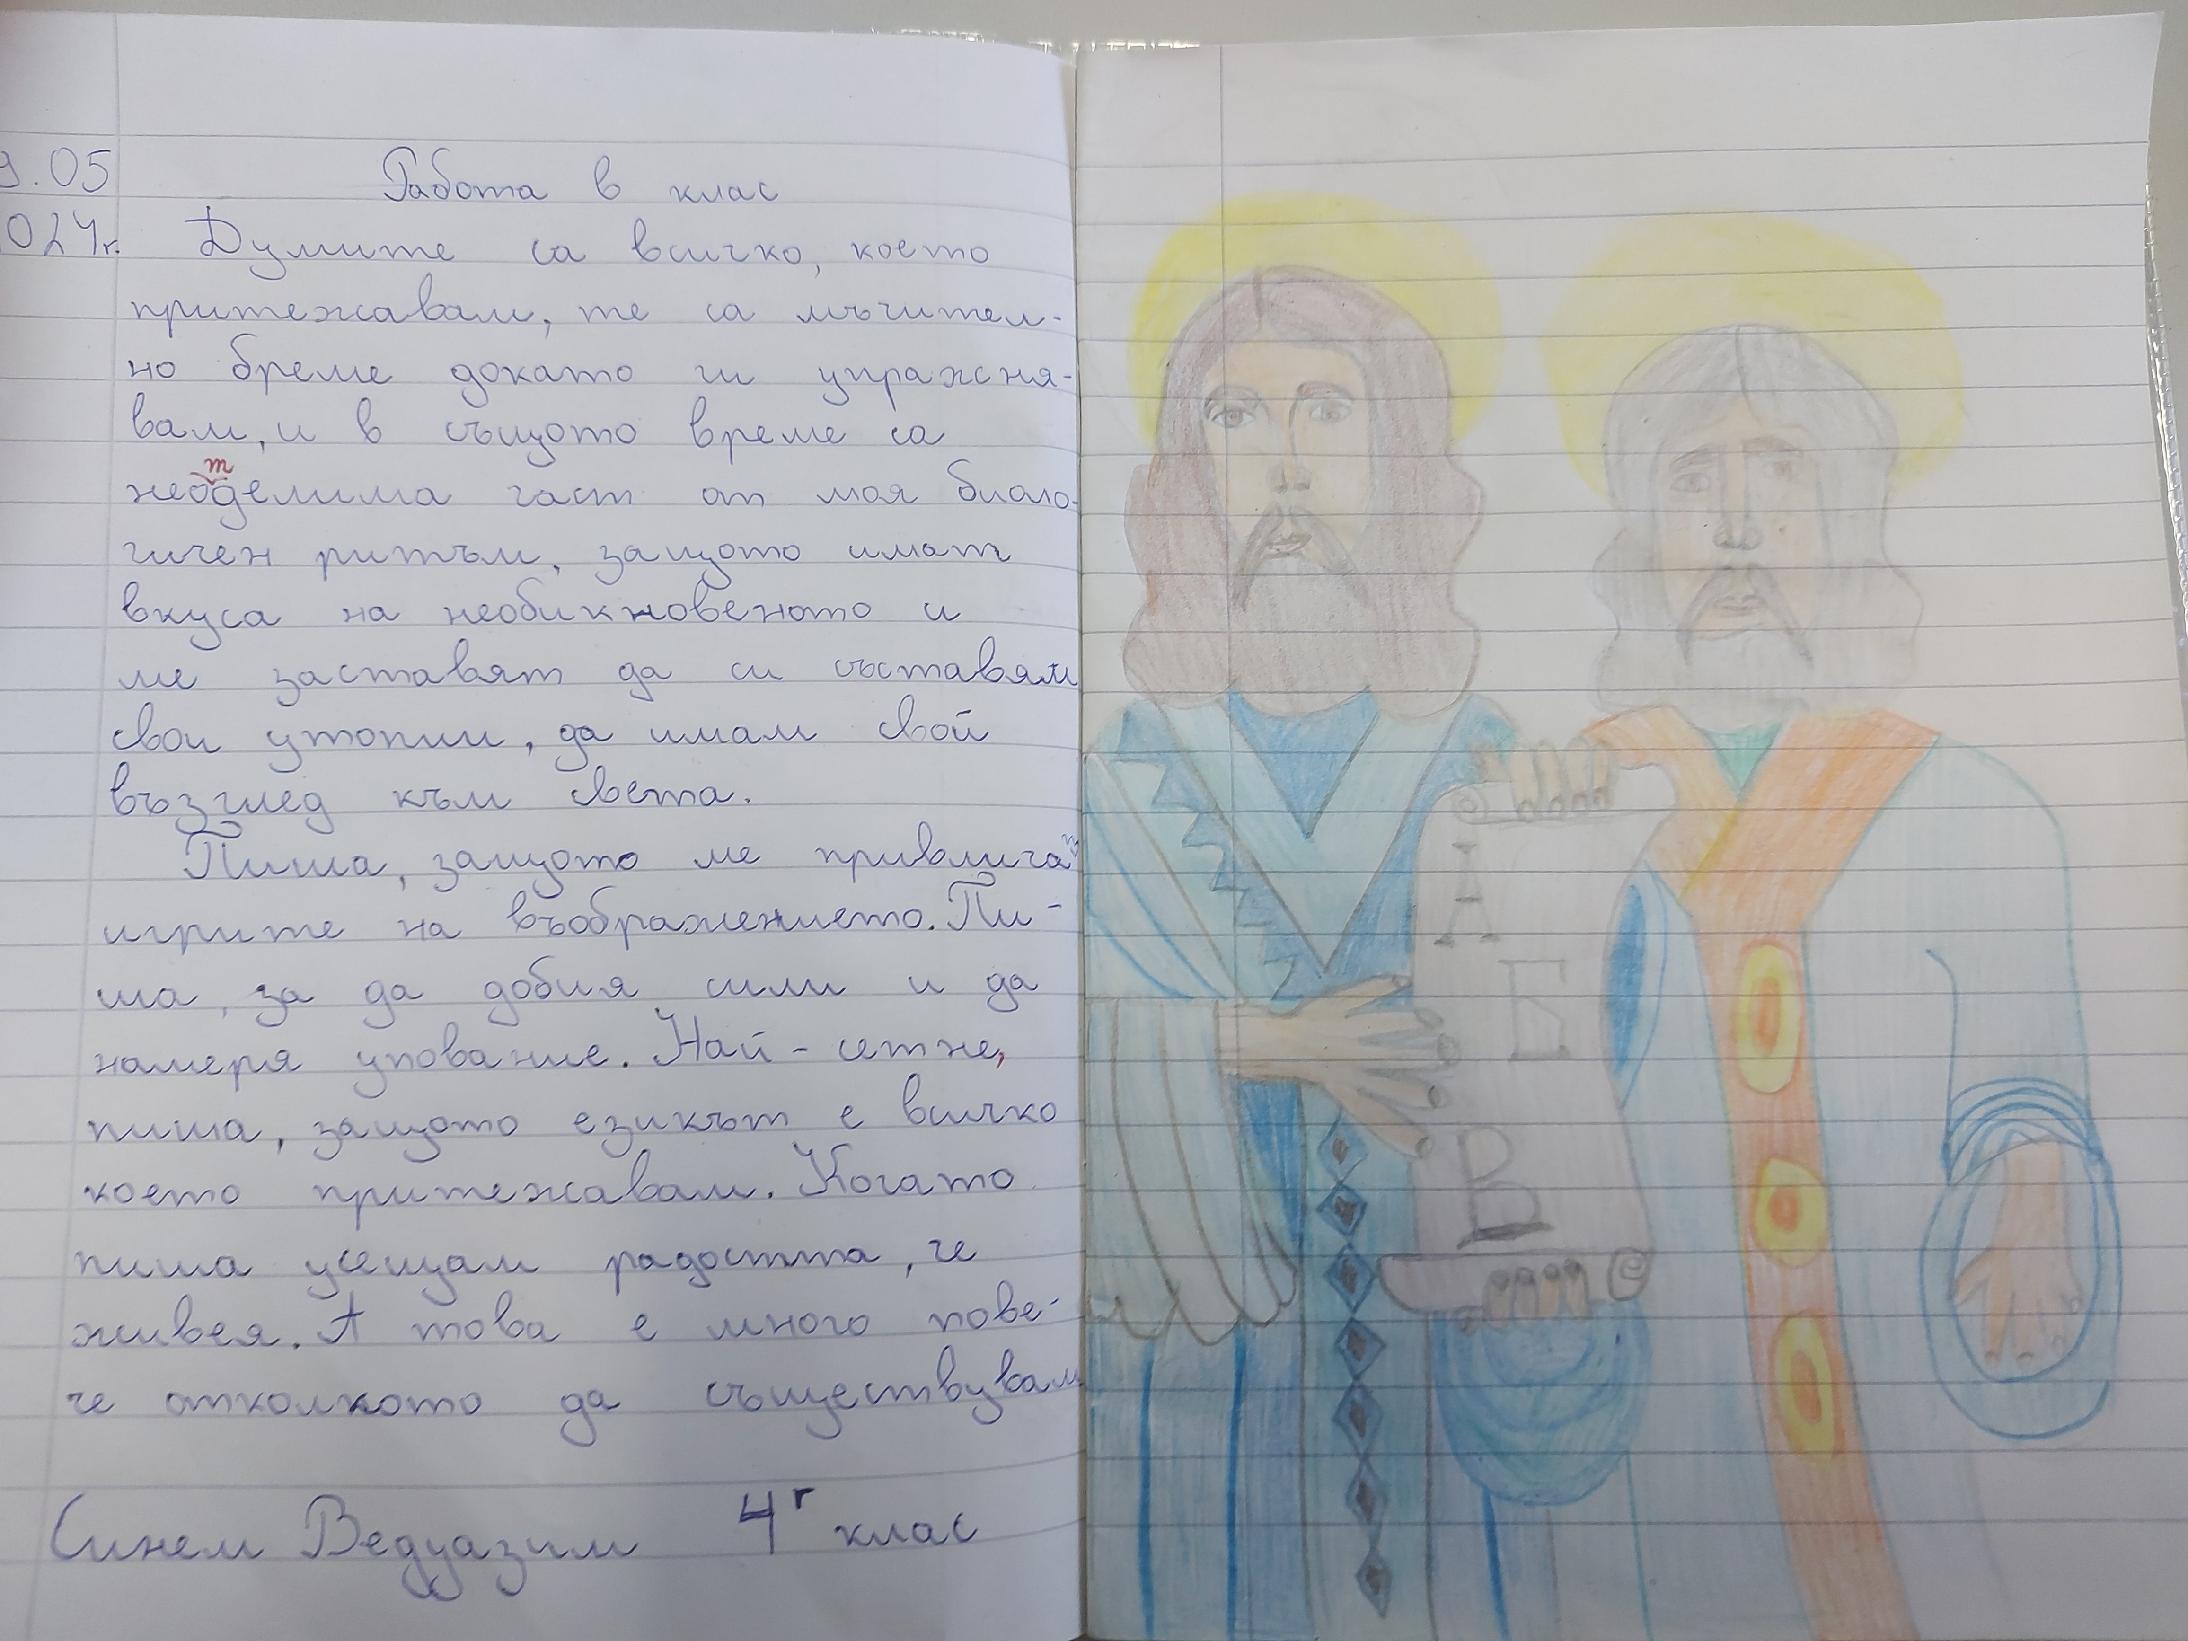 9.05
Работа в клас
024г.
Думите са всичко, което
притежавам, те са мъчител-
но бреме докато ги упражня-
вам, и в същото време са
т
неоделима част от моя биоло-
гичен ритъм, защото имат
вкуса на необикновеното и
ме заставят да си съставям
свои утопии, да имам свой
възглед към света.
Пиша, защото ме привличат
игрите на въображението. Пи-
ша, за да добия сили и да
намеря упование. Най-сетне,
пиша, защото езикът е всичко
което притежавам. Когато
пиша усещам радостта, че
живея. А това е много пове-
че отколкото да съществувам
Синем Ведуазим 4г клас
А
Б
В